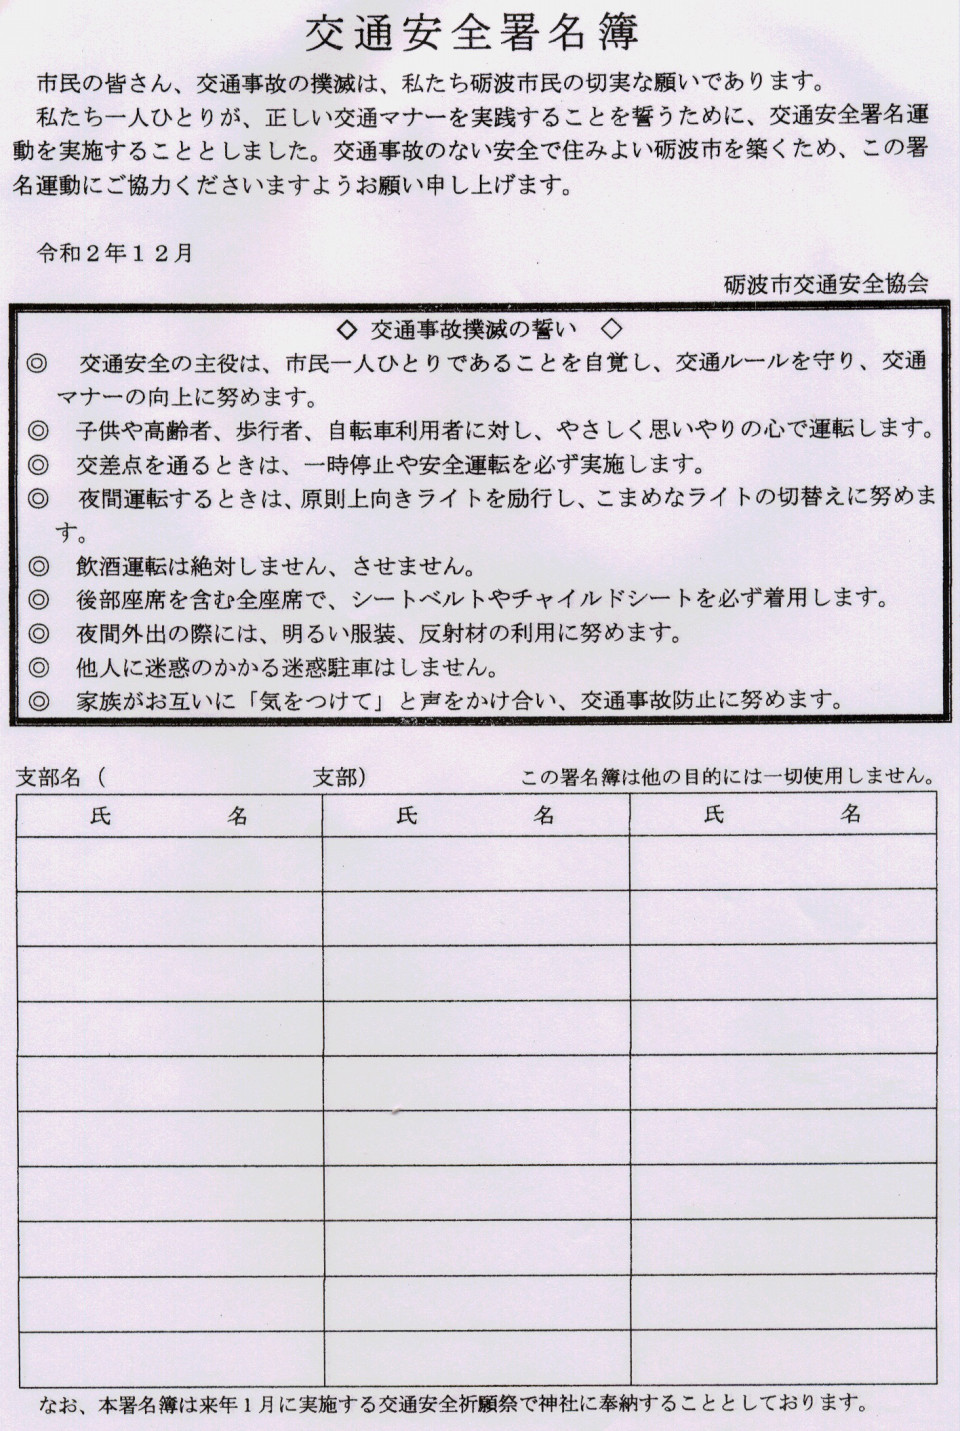 交通安全署名簿
市民の皆さん、交通事故の撲滅は、私たち砺波市民の切実な願いであります。
私たち一人ひとりが、正しい交通マナーを実践することを誓うために、交通安全署名運
動を実施することとしました。交通事故のない安全で住みよい砺波市を築くため、この署
名運動にご協力くださいますようお願い申し上げます。
令和２年１２月
砺波市交通安全協会
◇ 交通事故撲滅の誓い ◇
◎ 交通安全の主役は、市民一人ひとりであることを自覚し、交通ルールを守り、交通
マナーの向上に努めます。
◎ 子供や高齢者、歩行者、自転車利用者に対し、やさしく思いやりの心で運転します。
◎ 交差点を通るときは、一時停止や安全運転を必ず実施します。
◎ 夜間運転するときは、原則上向きライトを励行し、こまめなライトの切替えに努めま
す。
◎ 飲酒運転は絶対しません、させません。
◎ 後部座席を含む全座席で、シートベルトやチャイルドシートを必ず着用します。
◎ 夜間外出の際には、明るい服装、反射材の利用に努めます。
◎ 他人に迷惑のかかる迷惑駐車はしません。
◎ 家族がお互いに「気をつけて」と声をかけ合い、交通事故防止に努めます。
支部名（ 支部） この署名簿は他の目的には一切使用しません。
氏 名 氏 名 氏 名
なお、本署名簿は来年１月に実施する交通安全祈願祭で神社に奉納することとしております。